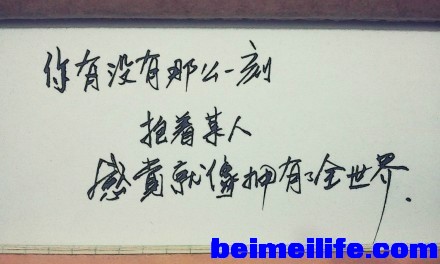 你有没有那么一刻
抱着某人
感觉就像拥有了全世界.
beimeilife.com